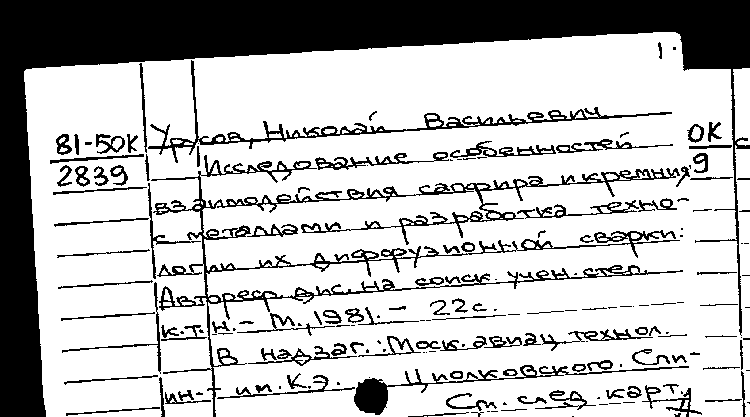 1.
81-50К
2839
Урусов, Николай Васильевич
Исследование особенностей
взаимодействия сапфира и кремния
с металлами и разработка техно-
логии их диффузионной сварки:
Автореф. дис. на соиск. учен. степ.
к.т.н. - М., 1981. - 22с.
В надзаг.: Моск. авиац. технол.
ин-т им. К.Э. Циолковского. Спи-
См. след. карт.
ОК
9
с